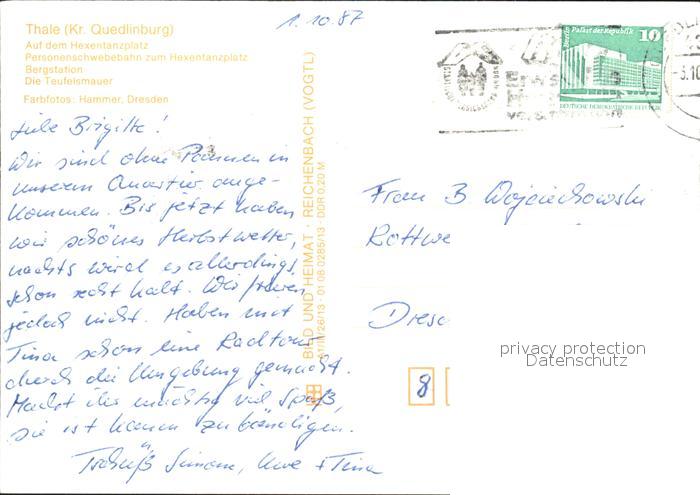 Thale (Kr. Quedlinburg)
Auf dem Hexentanzplatz
Personenschwebebahn zum Hexentanzplatz
Bergstation
Die Teufelsmauer
Farbfotos: Hammer, Dresden
1.10.87
Berlin Palast der Republik
10
DEUTSCHE DEMOKRATISCHE REPUBLIK
Liebe Brigitte!
Wir sind ohne Pannen in
unserem Quartier ange-
kommen. Bis jetzt haben
wir schönes Herbstwetter,
nachts wird es allerdings
schon recht kalt. Wir frieren
jedoch nicht. Haben mit
Tina schon eine Radtour
durch die Umgebung gemacht.
Macht ihr mächtig viel Spaß,
sie ist kaum zu bändigen.
Tschüß Simone, Uwe + Tina
BILD UND HEIMAT · REICHENBACH (VOGTL)
A1/III/26/13 · 01 08 0285/13 DDR 0,20 M
Frau B Wojciechowski
Rottwe
Dresd
8
privacy protection
Datenschutz